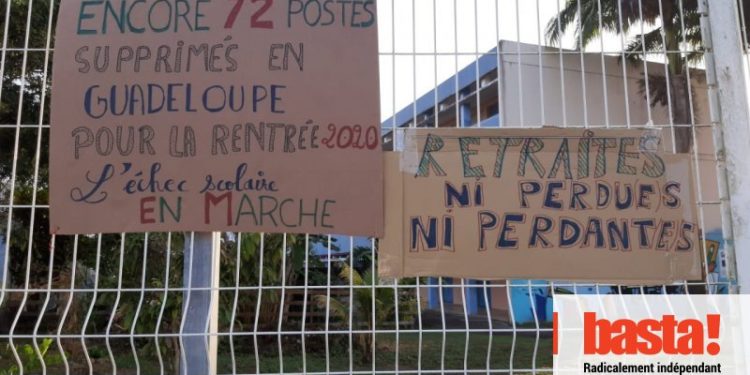 ENCORE 72 POSTES
SUPPRIMÉS EN
GUADELOUPE
POUR LA RENTRÉE 2020
L'échec scolaire
EN MARCHE
RETRAITES
NI PERDUES
NI PERDANTES
basta!
Radicalement indépendant